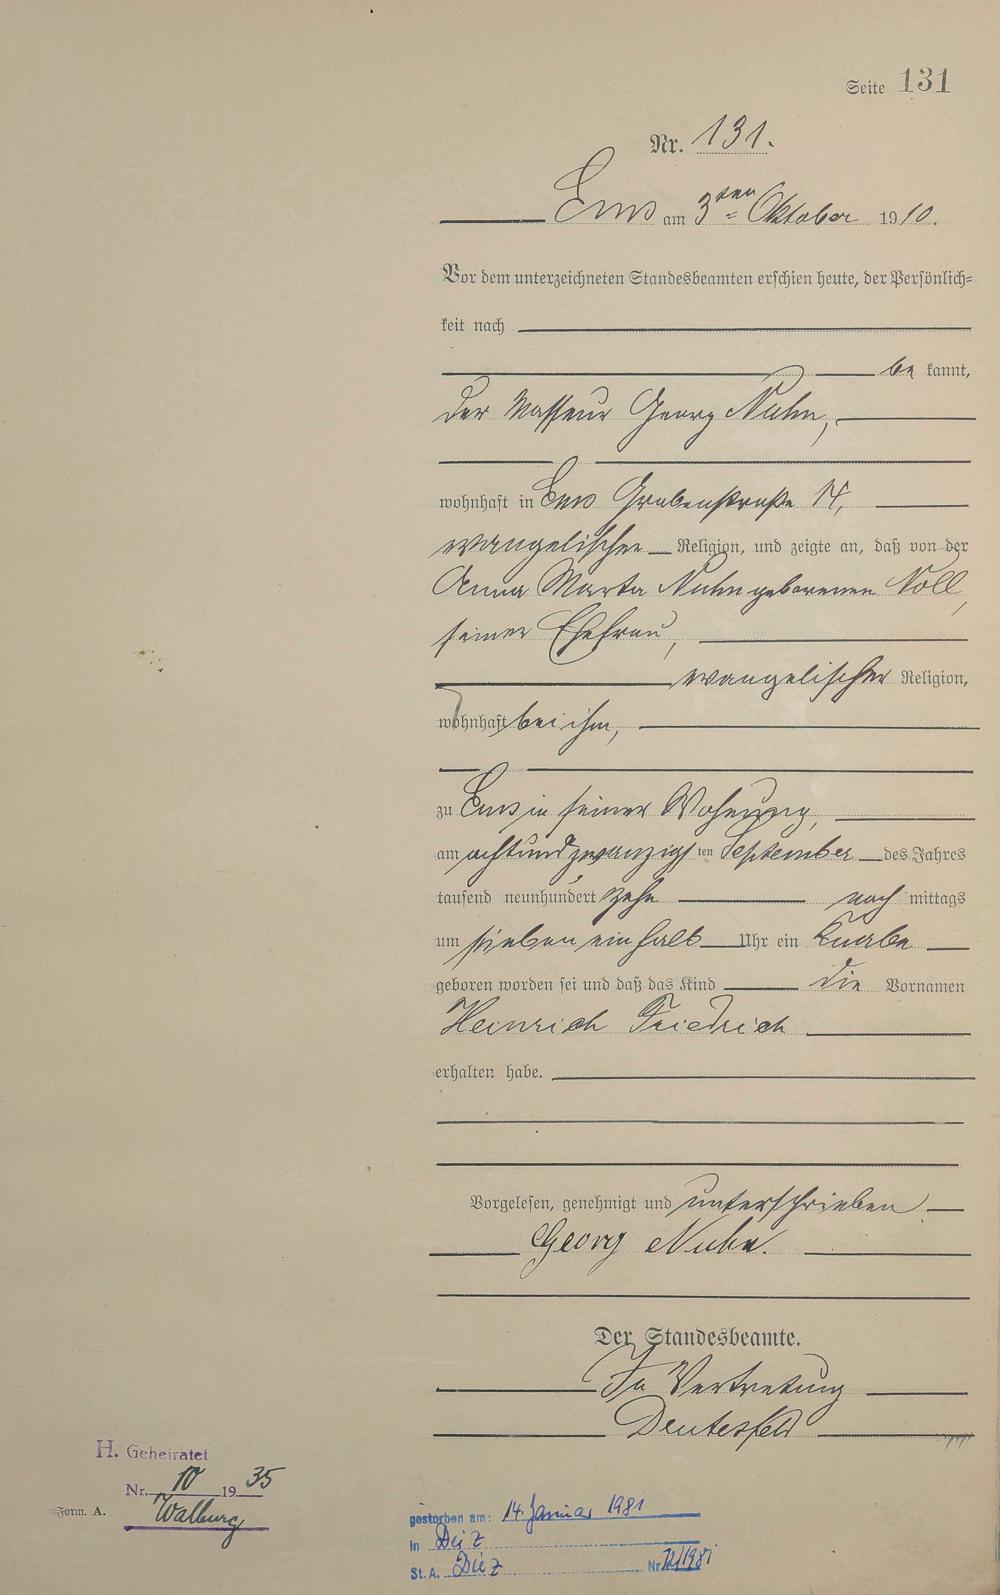 Seite 131
Nr. 131.
Ems am 3ten Oktober 1910.
Vor dem unterzeichneten Standesbeamten erschien heute, der Persönlich=
keit nach
be kannt,
der Masseur Georg Nuhn,
wohnhaft in Ems Grabenstraße 14,
evangelischer Religion, und zeigte an, daß von der
Anna Marta Nuhn geborenen Noll,
seiner Ehefrau,
evangelischer Religion,
wohnhaft bei ihm,
zu Ems in seiner Wohnung,
am achtundzwanzigsten September des Jahres
tausend neunhundert zehn nach mittags
um sieben einhalb Uhr ein Knabe
geboren worden sei und daß das Kind die Vornamen
Heinrich Friedrich
erhalten habe.
Vorgelesen, genehmigt und unterschrieben
Georg Nuhn.
Der Standesbeamte.
In Vertretung
H. Geheiratet
Nr. 10 1935
Form. A.
gestorben am: 14. Januar 1981
in Diez
St. A. Diez Nr. /1981